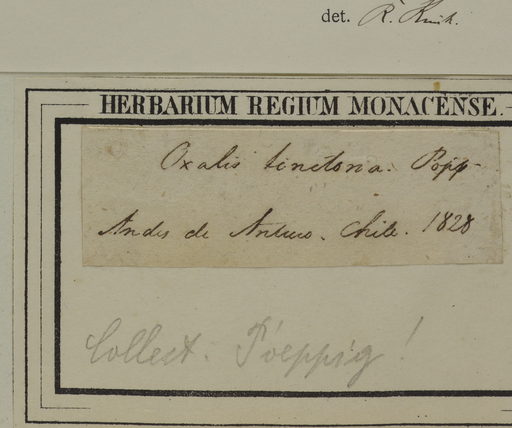 det. R. Knuth.
HERBARIUM REGIUM MONACENSE.
Oxalis tinctoria. Pöpp
Andes de Antuco. Chile. 1828
Collect. Poeppig!